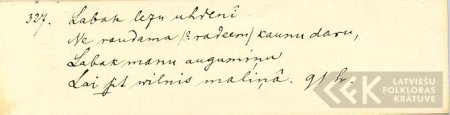 327. Labak lezu uhdenî
Ne raudama /: radeem/ kaunu daru,
Labak manu augumiņu
Lai pt wilnis maliņâ. 91 h.
LATVIEŠU
FOLKLORAS
KRĀTUVE